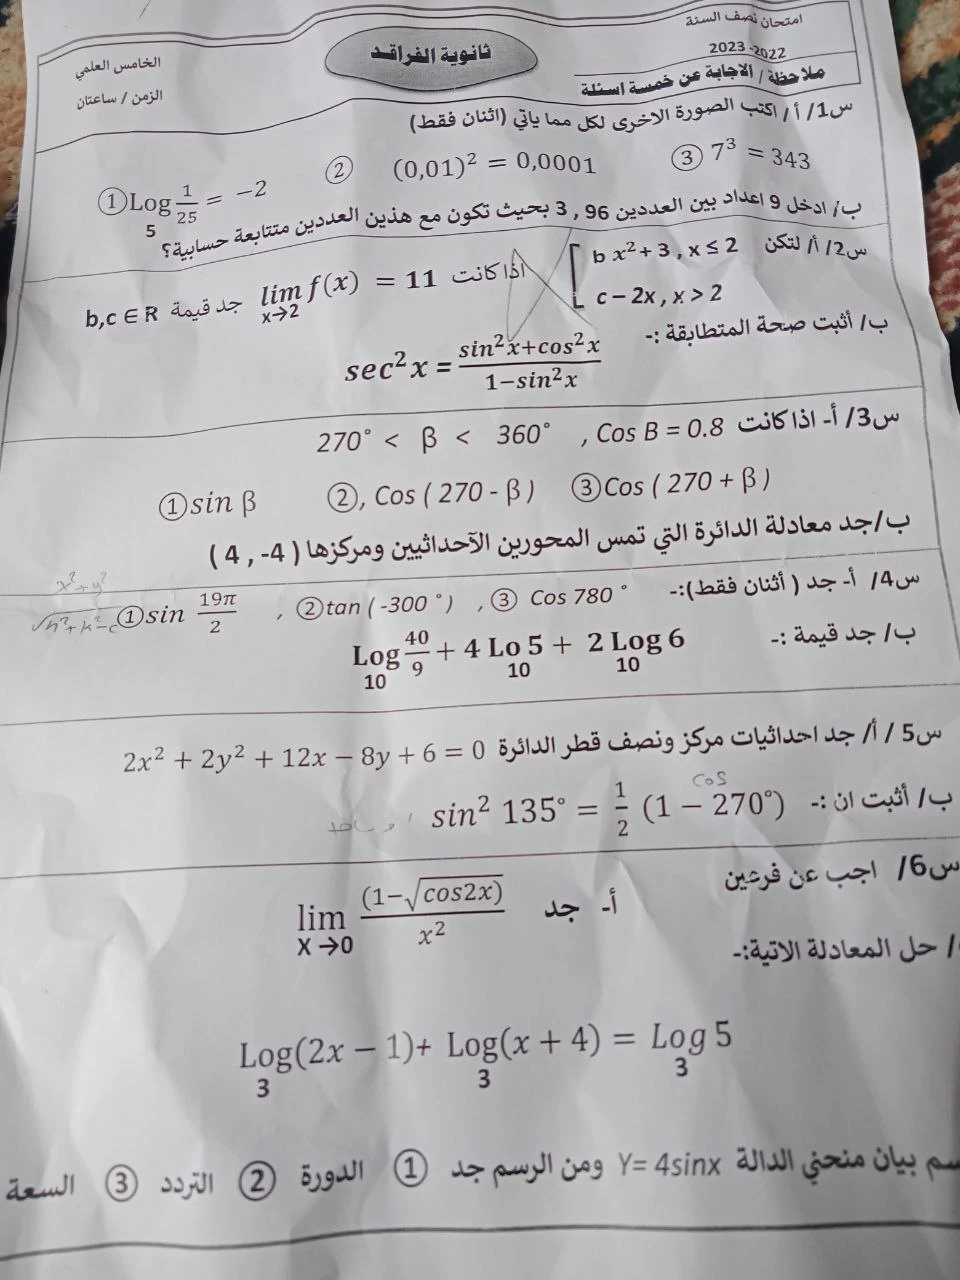 امتحان نصف السنة
2022-2023
ثانوية الفراقد
الخامس العلمي
الزمن / ساعتان
ملاحظة / الاجابة عن خمسة اسئلة
س1/ أ/ اكتب الصورة الاخرى لكل مما ياتي (اثنان فقط)
① Log₅ 1/25 = −2 ② (0,01)² = 0,0001 ③ 7³ = 343
ب/ ادخل 9 اعداد بين العددين 96 , 3 بحيث تكون مع هذين العددين متتابعة حسابية؟
س2/ أ/ لتكن b x² + 3 , x ≤ 2
c – 2x , x > 2
اذا كانت lim x→2 f(x) = 11 جد قيمة b,c ∈ R
ب/ أثبت صحة المتطابقة :-
sec²x = (sin²x+cos²x)/(1−sin²x)
س3/ أ- اذا كانت Cos B = 0.8 , 270° < β < 360°
① sin β ②, Cos ( 270 - β ) ③ Cos ( 270 + β )
ب/جد معادلة الدائرة التي تمس المحورين الآحداثيين ومركزها ( 4- , 4 )
س4/ أ- جد ( أثنان فقط):-
① sin 19π/2 , ② tan ( -300 ° ) , ③ Cos 780 °
x²+y²
√h²+k²−c
ب/ جد قيمة :-
Log₁₀ 40/9 + 4 Lo₁₀ 5 + 2 Log₁₀ 6
س5 / أ/ جد احداثيات مركز ونصف قطر الدائرة 2x² + 2y² + 12x − 8y + 6 = 0
ب/ أثبت ان :- sin² 135° = 1/2 (1 − 270°)
cos
س6/ اجب عن فرعين
أ- جد lim X→0 (1−√cos2x)/x²
/ حل المعادلة الاتية:-
Log₃(2x − 1)+ Log₃(x + 4) = Log₃ 5
سم بيان منحني الدالة Y= 4sinx ومن الرسم جد ① الدورة ② التردد ③ السعة